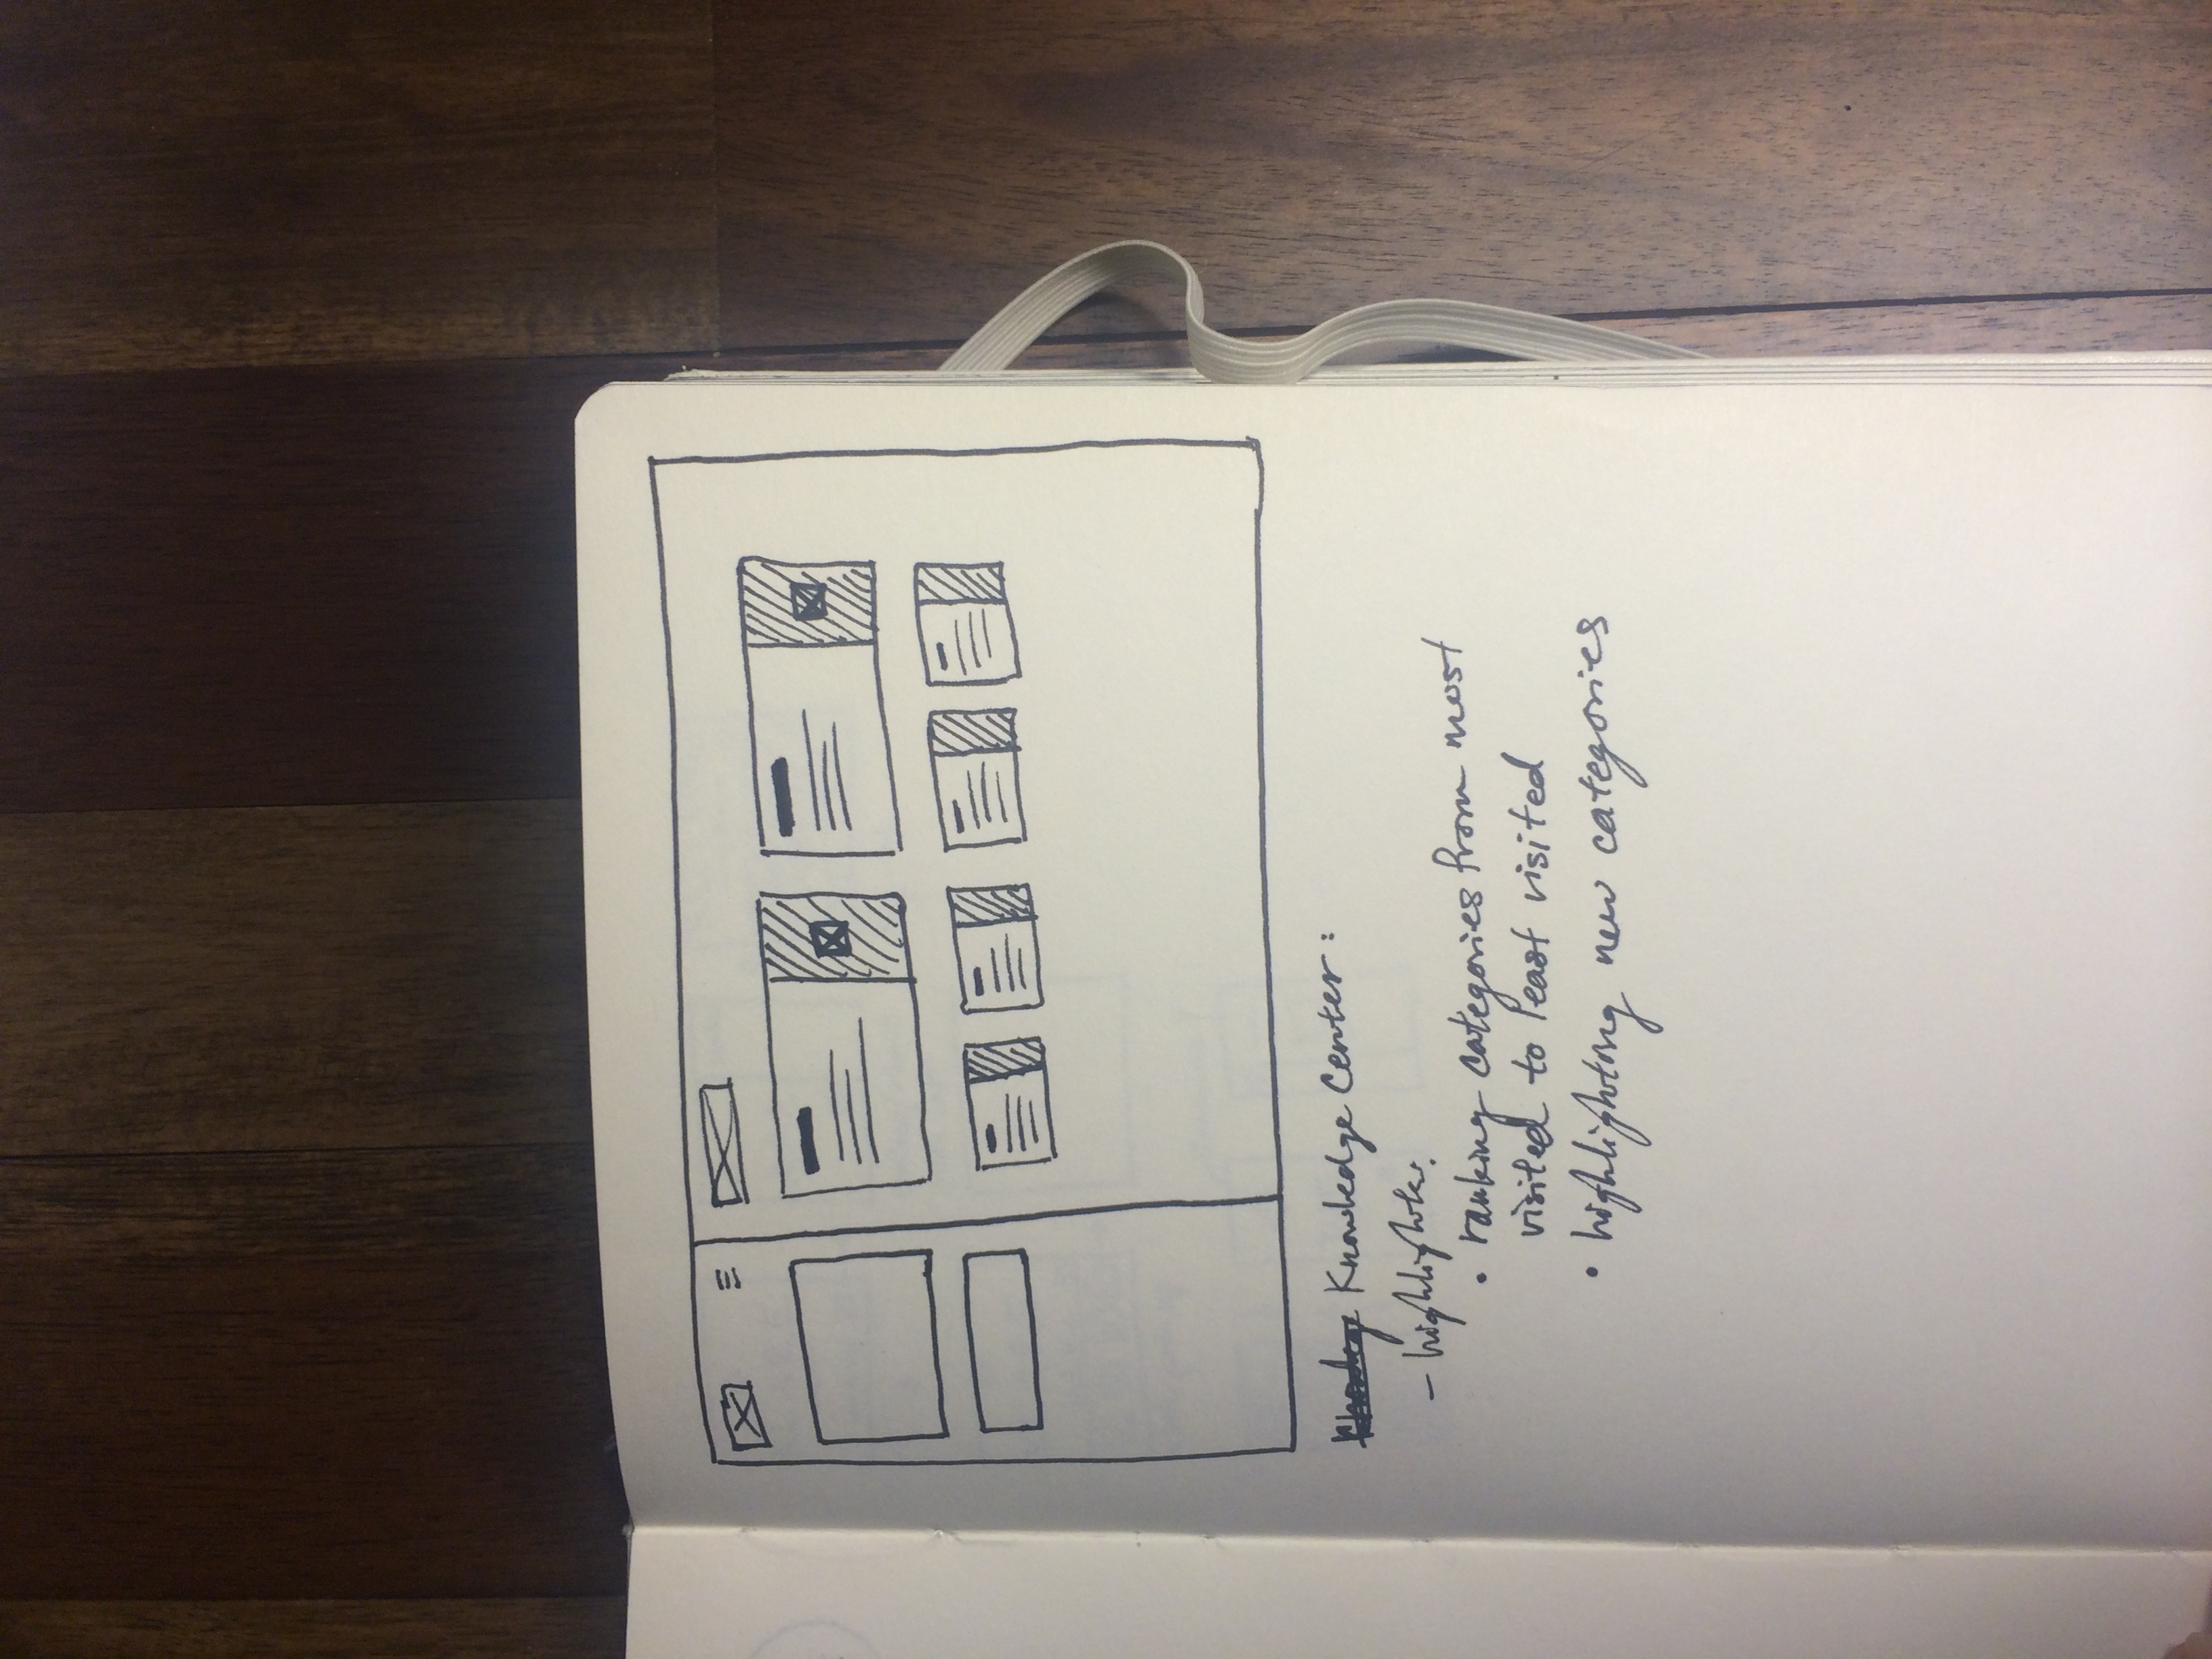 Knowledge Center:
- highlights:
• ranking categories from most
visited to least visited
• highlighting new categories